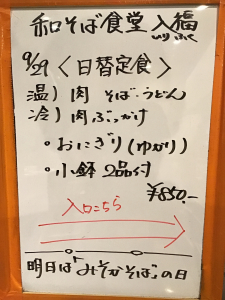 和そば食堂 入福
9/29 〈日替定食〉
温) 肉 そば・うどん
冷) 肉ぶっかけ
・おにぎり(ゆかり)
・小鉢 2品付
¥850-
入口こちら
明日は「みそかそば」の日